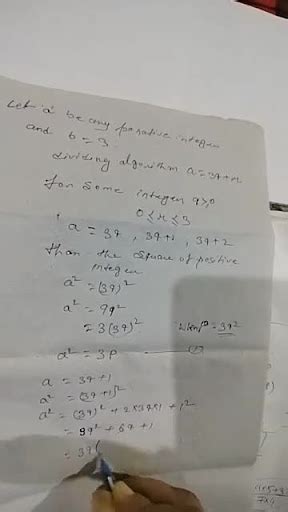 Let 'a' be any positive integer
and b = 3
dividing algorithm a = 3q+r
for some integer q≥0
0 ≤ r ≤ 3
a = 3q, 3q+1, 3q+2
than the square of positive
integer
a² = (3q)²
a² = 9q²
= 3(3q)² where P = 3q²
a² = 3P
a = 3q+1
a² = (3q+1)²
a² = (3q)² + 2×3q×1 + 1²
= 9q² + 6q + 1
= 3q(